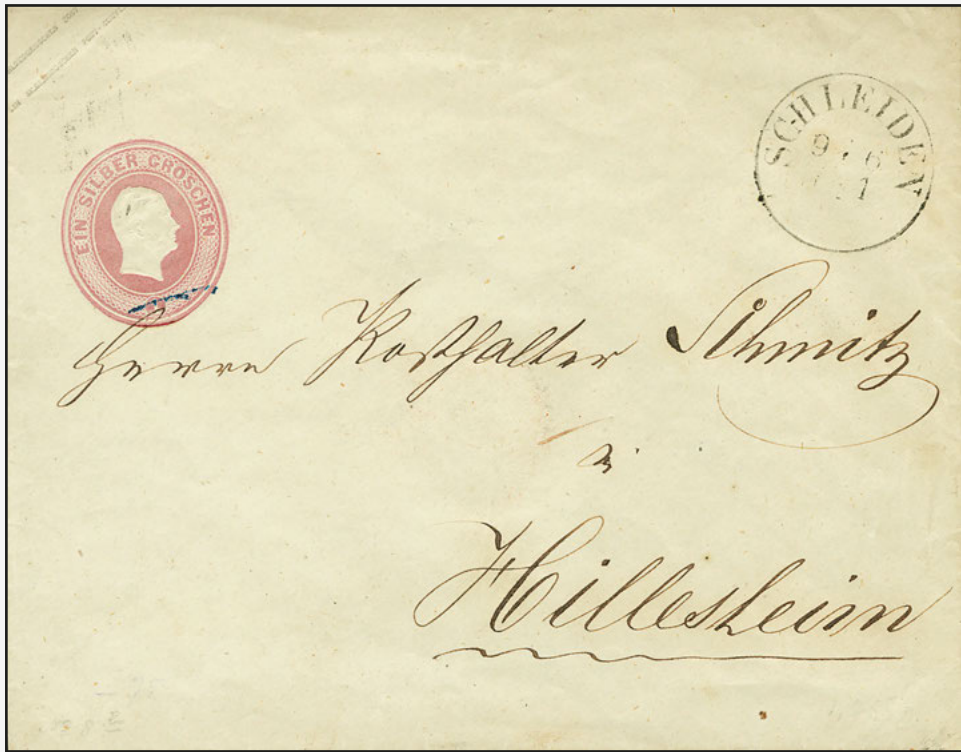 EIN SILBER GROSCHEN
SCHLEIDEN
9 6
Herrn Posthalter Schmitz
in
Hillesheim